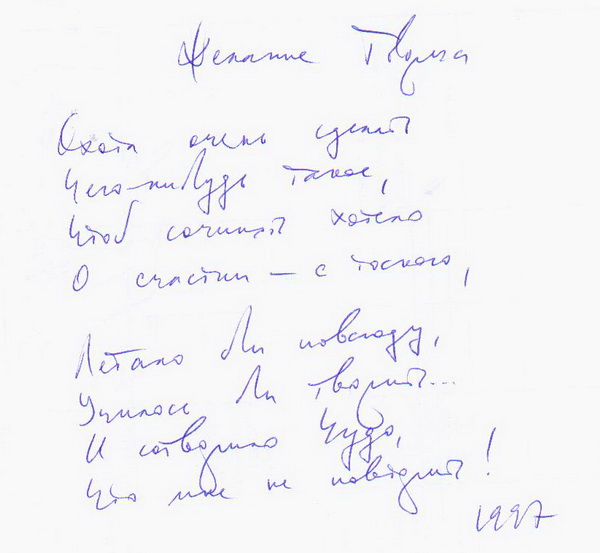 Желание Творца
Охота очень сделать
Чего-нибудь такое,
Чтоб сочинять хотело
О счастии — с тоскою,
Летало бы повсюду,
Училось бы творить...
И сотворило Чудо,
Что мне не повторить!
1997